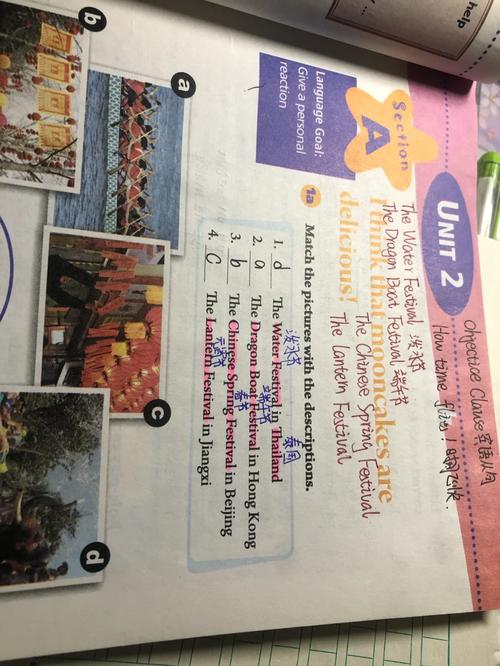 help
Objective Clause 宾语从句
How time flies! 时间飞快.
UNIT 2
The Water Festival 泼水节
The Dragon Boat Festival 端午节
I think that mooncakes are
The Chinese Spring Festival
delicious!
The Lantern Festival
Section
A
Language Goal:
Give a personal
reaction
1a Match the pictures with the descriptions.
泼水节 泰国
1. d The Water Festival in Thailand
端午节
2. a The Dragon Boat Festival in Hong Kong
春节
3. b The Chinese Spring Festival in Beijing
元宵节
4. c The Lantern Festival in Jiangxi
a
b
c
d